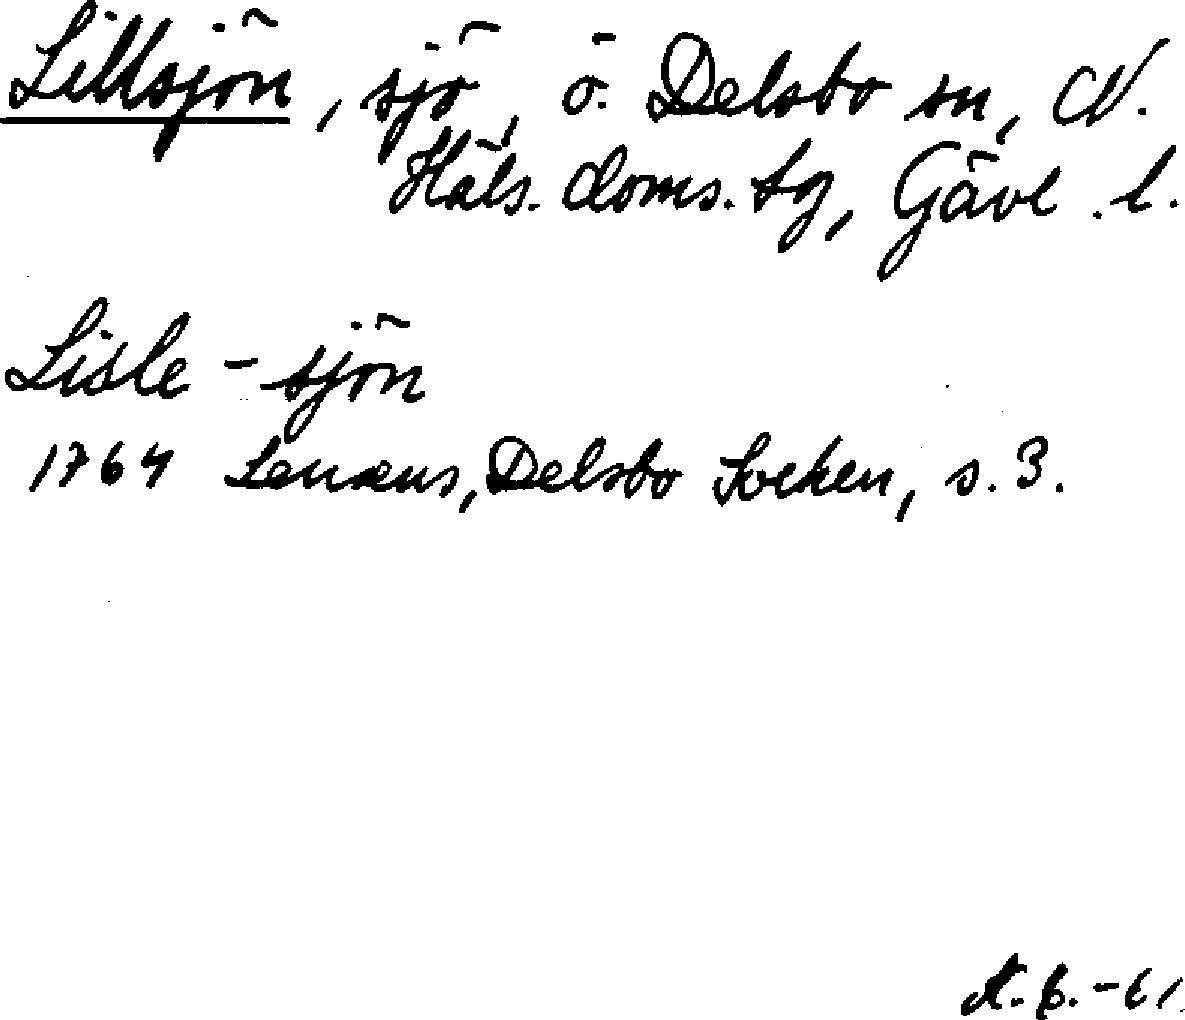 Lillsjön, sjö, ö. Delsbo sn, N.
Häls. doms. tg, Gävl. l.
Lisle-sjön
1764 Lenæus, Delsbo Socken, s. 3.
A. B. -61